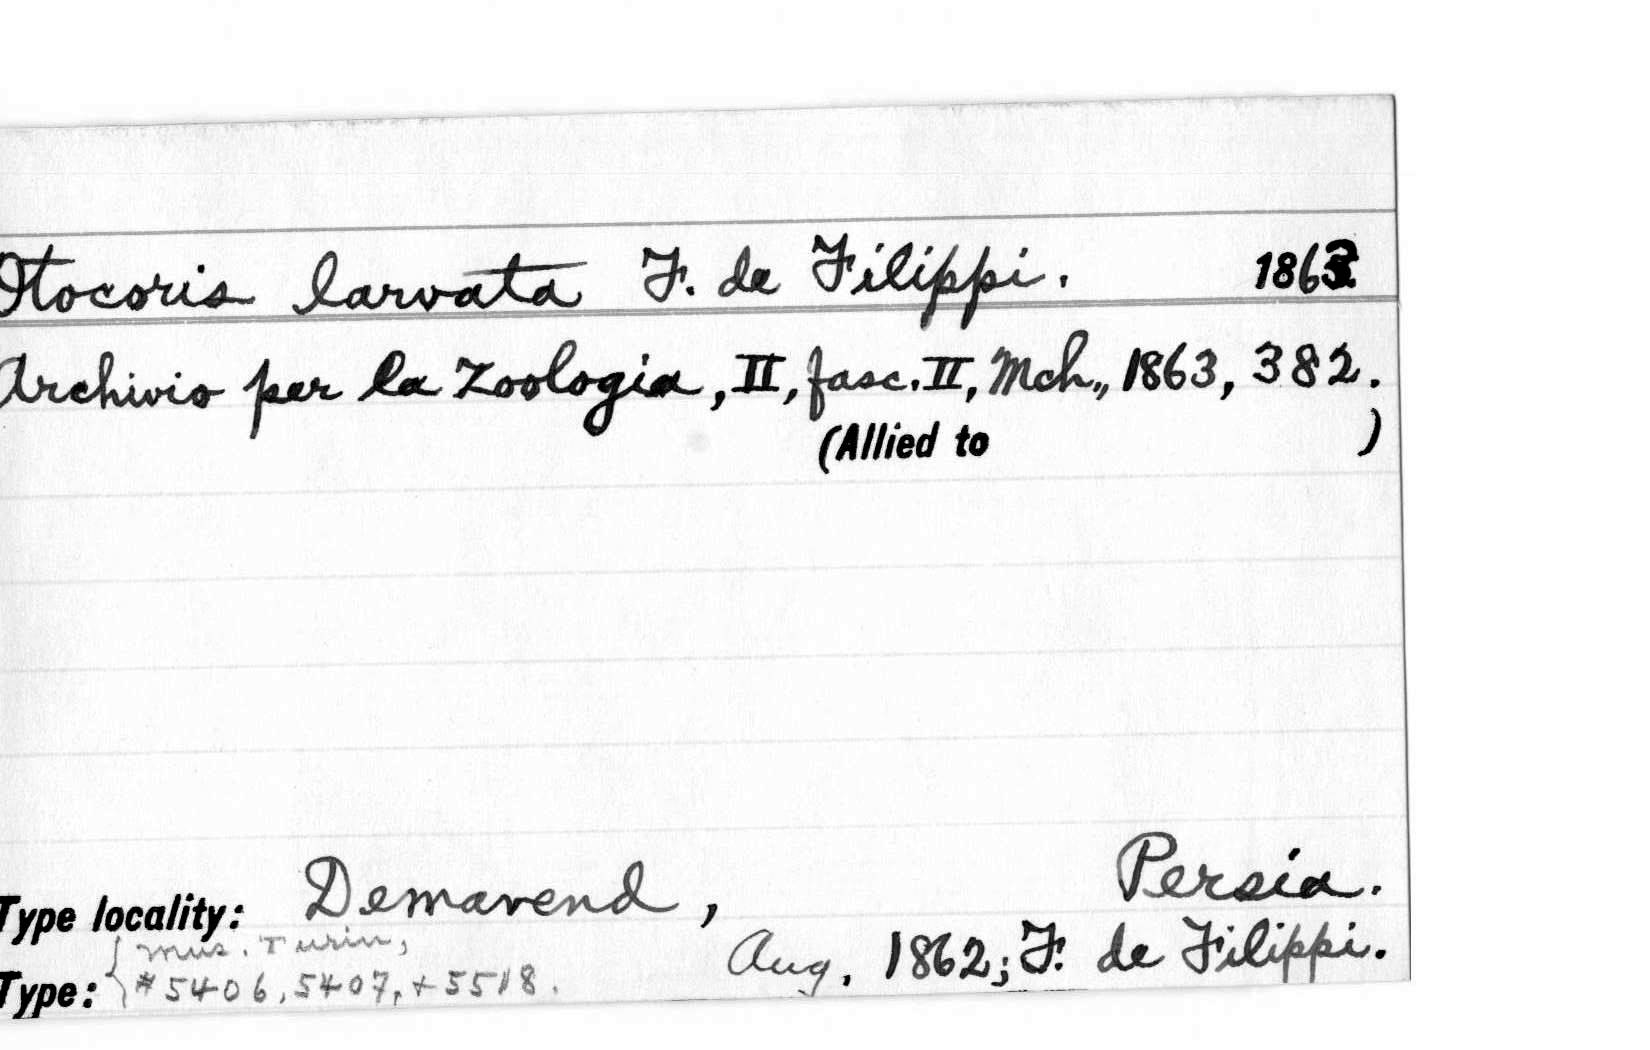 Otocoris larvata F. de Filippi. 1863.
Archivio per la Zoologia, II, fasc. II, Mch., 1863, 382.
(Allied to )
Type locality: Demavend, Persia.
Type: { Mus. Turin, #5406, 5407, + 5518.
Aug, 1862; F. de Filippi.